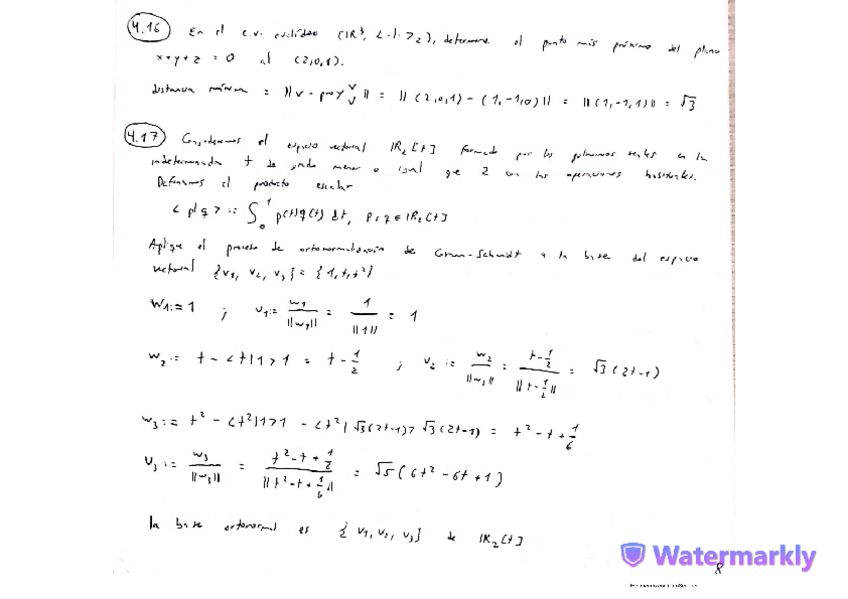 4.16 En el e.v. euclídeo (IR³, <·|·>₂), determine el punto más próximo del plano
x+y+z=0 al (2,0,1).
distancia mínima = ||v - proy v/V|| = ||(2,0,1)-(1,-1,0)|| = ||(1,-1,1)|| = √3
4.17 Consideremos el espacio vectorial IR₂[t] formado por los polinomios reales en la
indeterminada t de grado menor o igual que 2 con las operaciones habituales.
Definamos el producto escalar
<p|q> := ∫₀¹ p(t)q(t) dt, p,q ∈ IR₂[t]
Aplique el proceso de ortonormalización de Gram-Schmidt a la base del espacio
vectorial {v₁, v₂, v₃} = {1,t,t²}
w₁:=1 ; v₁:= w₁/||w₁|| = 1/||1|| = 1
w₂:= t - <t|1>1 = t - 1/2 ; v₂ := w₂/||w₂|| = (t - 1/2)/||t - 1/2|| = √3(2t-1)
w₃:= t² - <t²|1>1 - <t²|√3(2t-1)>√3(2t-1) = t² - t + 1/6
v₃:= w₃/||w₃|| = (t² - t + 1/6)/||t² - t + 1/6|| = √5(6t² - 6t + 1)
la base ortonormal es {v₁, v₂, v₃} de IR₂[t]
Watermarkly
8